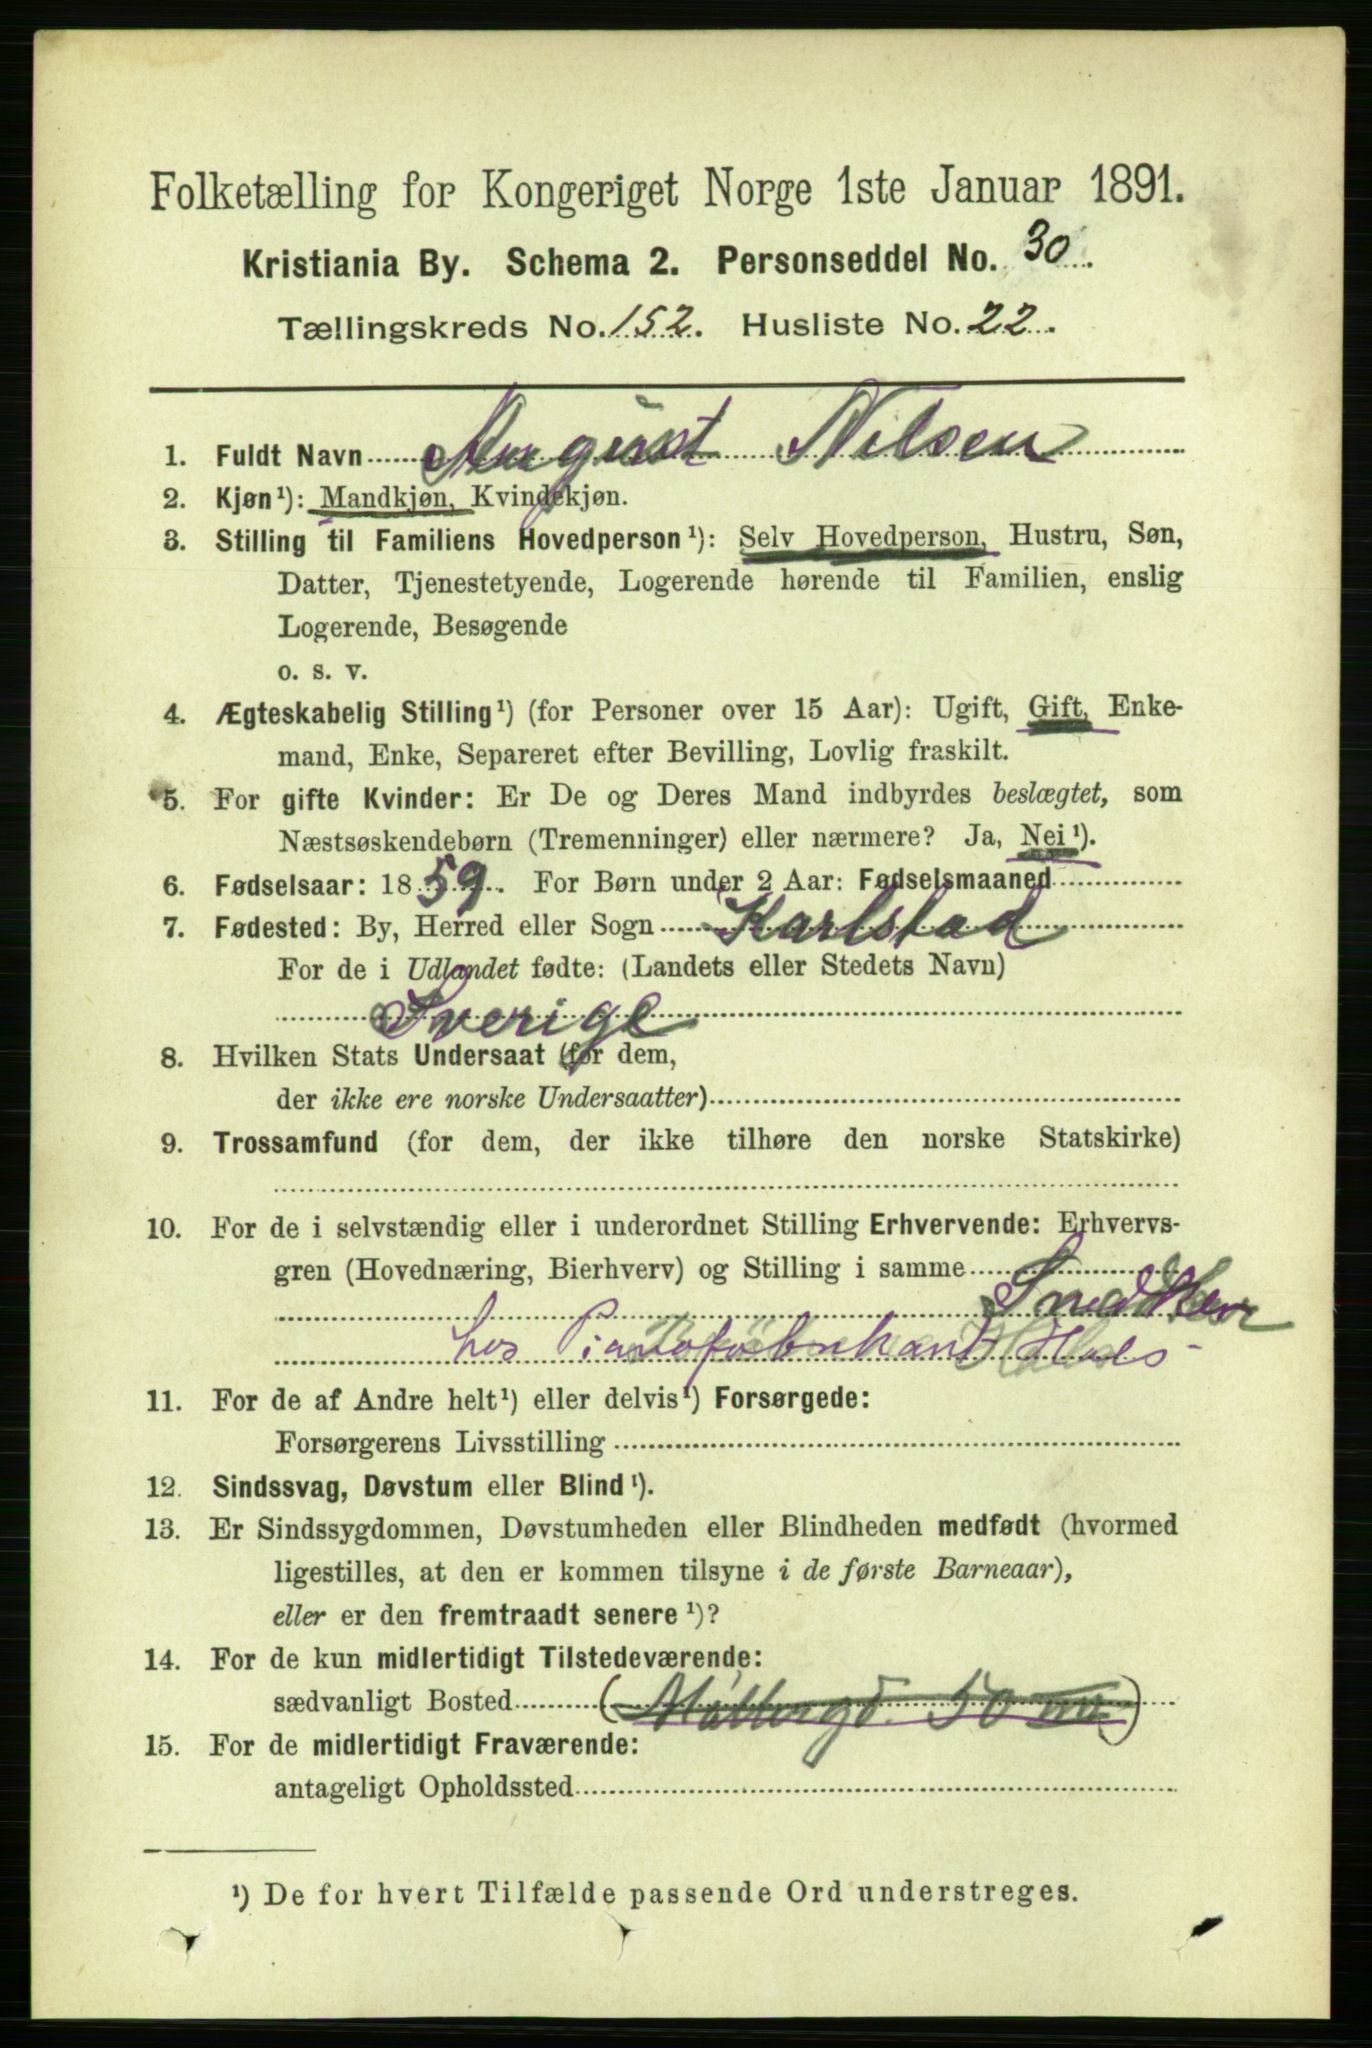 Folketælling for Kongeriget Norge 1ste Januar 1891.
Kristiania By. Schema 2. Personseddel No. 30.
Tællingskreds No. 152. Husliste No. 22.
1. Fuldt Navn August Nilsen
2. Kjøn¹): Mandkjøn, Kvindekjøn.
3. Stilling til Familiens Hovedperson¹): Selv Hovedperson, Hustru, Søn,
Datter, Tjenestetyende, Logerende hørende til Familien, enslig
Logerende, Besøgende
o. s. v.
4. Ægteskabelig Stilling¹) (for Personer over 15 Aar): Ugift, Gift, Enke-
mand, Enke, Separeret efter Bevilling, Lovlig fraskilt.
5. For gifte Kvinder: Er De og Deres Mand indbyrdes beslægtet, som
Næstsøskendebørn (Tremenninger) eller nærmere? Ja, Nei¹).
6. Fødselsaar: 1859. For Børn under 2 Aar: Fødselsmaaned
7. Fødested: By, Herred eller Sogn Karlstad
For de i Udlandet fødte: (Landets eller Stedets Navn)
Sverige
8. Hvilken Stats Undersaat (for dem,
der ikke ere norske Undersaatter)
9. Trossamfund (for dem, der ikke tilhøre den norske Statskirke)
10. For de i selvstændig eller i underordnet Stilling Erhvervende: Erhvervs-
gren (Hovednæring, Bierhverv) og Stilling i samme
Snedker
hos Pianofabrikant Hals
11. For de af Andre helt¹) eller delvis¹) Forsørgede:
Forsørgerens Livsstilling
12. Sindssvag, Døvstum eller Blind¹).
13. Er Sindssygdommen, Døvstumheden eller Blindheden medfødt (hvormed
ligestilles, at den er kommen tilsyne i de første Barneaar),
eller er den fremtraadt senere¹)?
14. For de kun midlertidigt Tilstedeværende:
sædvanligt Bosted ( 50 )
15. For de midlertidigt Fraværende:
antageligt Opholdssted
¹) De for hvert Tilfælde passende Ord understreges.